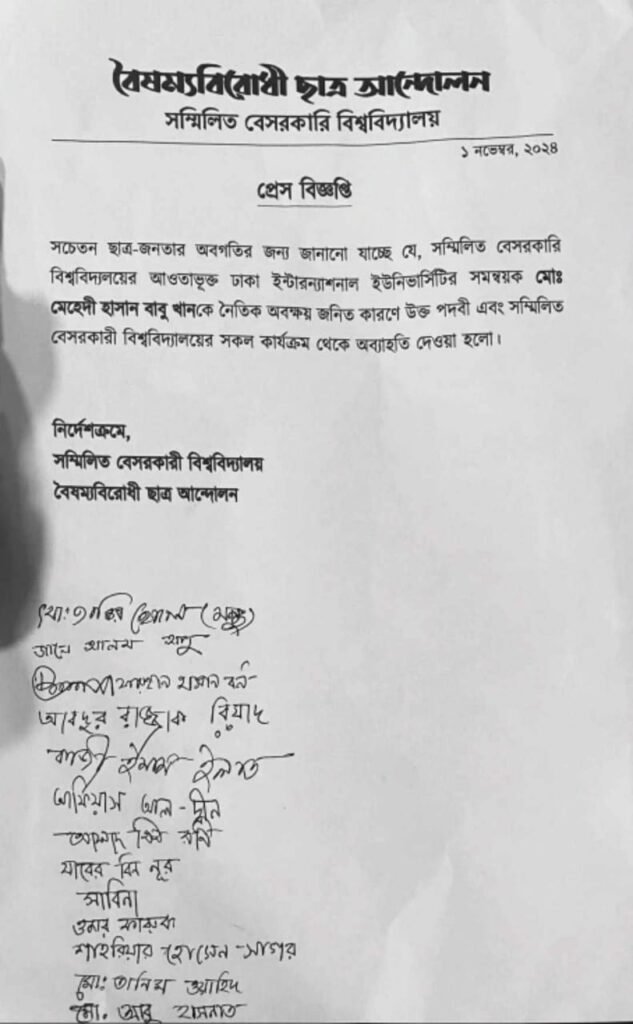 বৈষম্যবিরোধী ছাত্র আন্দোলন
সম্মিলিত বেসরকারি বিশ্ববিদ্যালয়
১ নভেম্বর, ২০২৪
প্রেস বিজ্ঞপ্তি
সচেতন ছাত্র-জনতার অবগতির জন্য জানানো যাচ্ছে যে, সম্মিলিত বেসরকারি
বিশ্ববিদ্যালয়ের আওতাভুক্ত ঢাকা ইন্টারন্যাশনাল ইউনিভার্সিটির সমন্বয়ক মোঃ
মেহেদী হাসান বাবু খানকে নৈতিক অবক্ষয় জনিত কারণে উক্ত পদবী এবং সম্মিলিত
বেসরকারী বিশ্ববিদ্যালয়ের সকল কার্যক্রম থেকে অব্যাহতি দেওয়া হলো।
নির্দেশক্রমে,
সম্মিলিত বেসরকারী বিশ্ববিদ্যালয়
বৈষম্যবিরোধী ছাত্র আন্দোলন
মোঃ
জানে আলম অপু
হাসান
আবদুর রাজ্জাক রিয়াদ
কাজী
আল - দ্বীন
রনি
যাবের বিন নূর
সাবিনা
ওমর ফারুক
শাহরিয়ার হোসেন সাগর
মো: তানিম ওয়াহিদ
মো. আবু হাসনাত